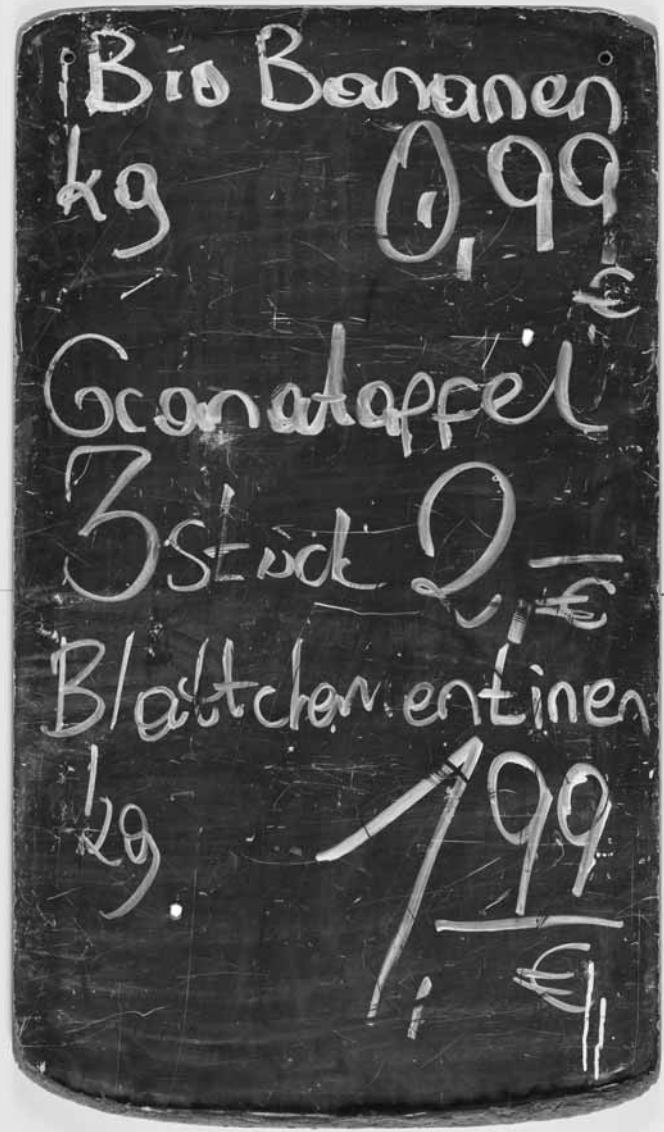 Bio Bananen
kg 0,99
€
Granatapfel
3 Stück 2,–
€
Blattclementinen
kg 1,99
€